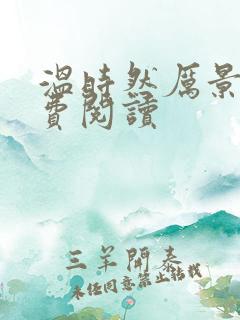 溫時然厲景
費閱讀
三羊開泰
未經同意禁止轉載